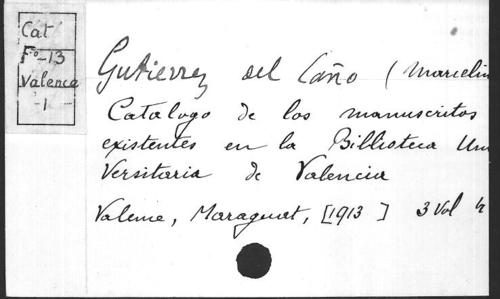 Cat
Fº-13
Valence
-1
Gutierrez del Caño (Marcelin
Catalogo de los manuscritos
existentes en la Biblioteca Uni
Versitaria de Valencia
Valence, Maraguat, [1913] 3 Vol